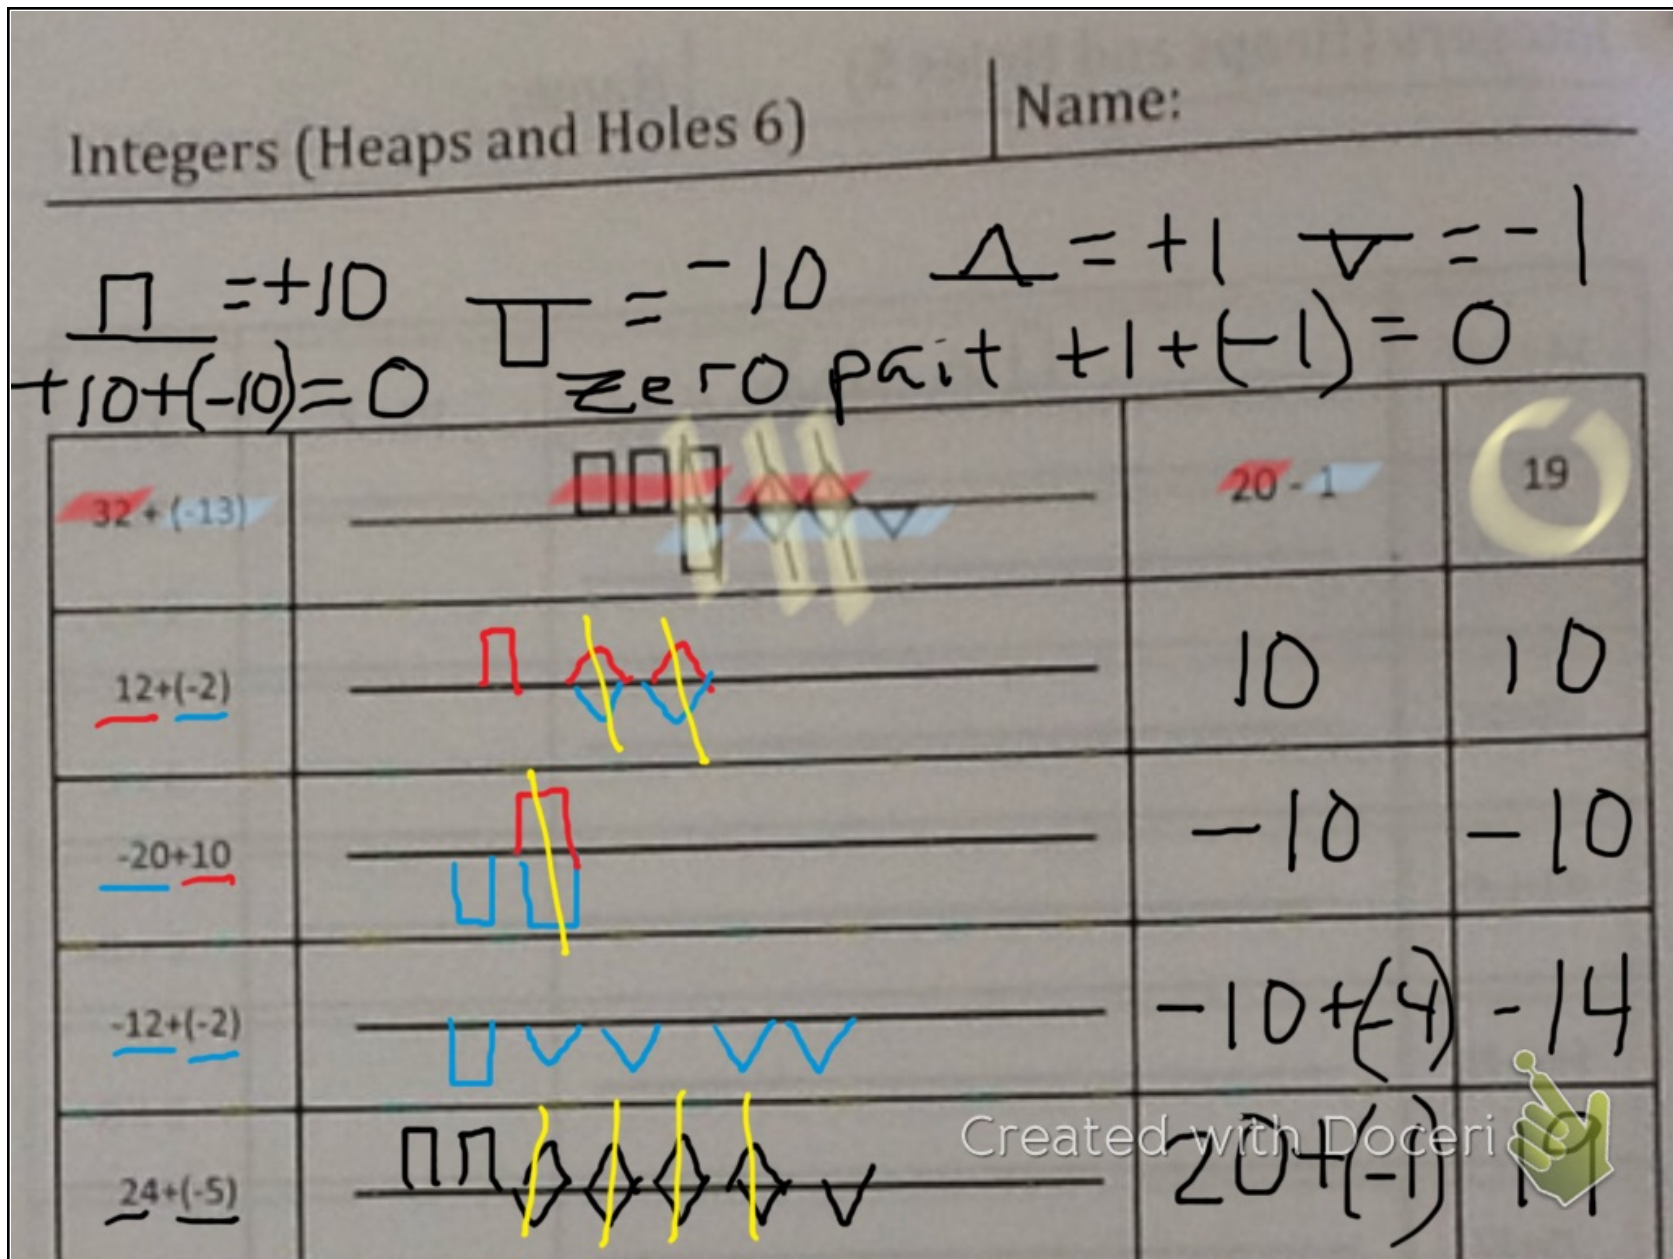 Integers (Heaps and Holes 6) Name:
=+10 = -10 = +1 = -1
+10+(-10)=0 zero pait +1+(-1)=0
32 + (-13) 20 - 1 19
12+(-2) 10 10
-20+10 -10 -10
-12+(-2) -10+(-4) -14
Created with Doceri
24+(-5) 20+(-1) 19